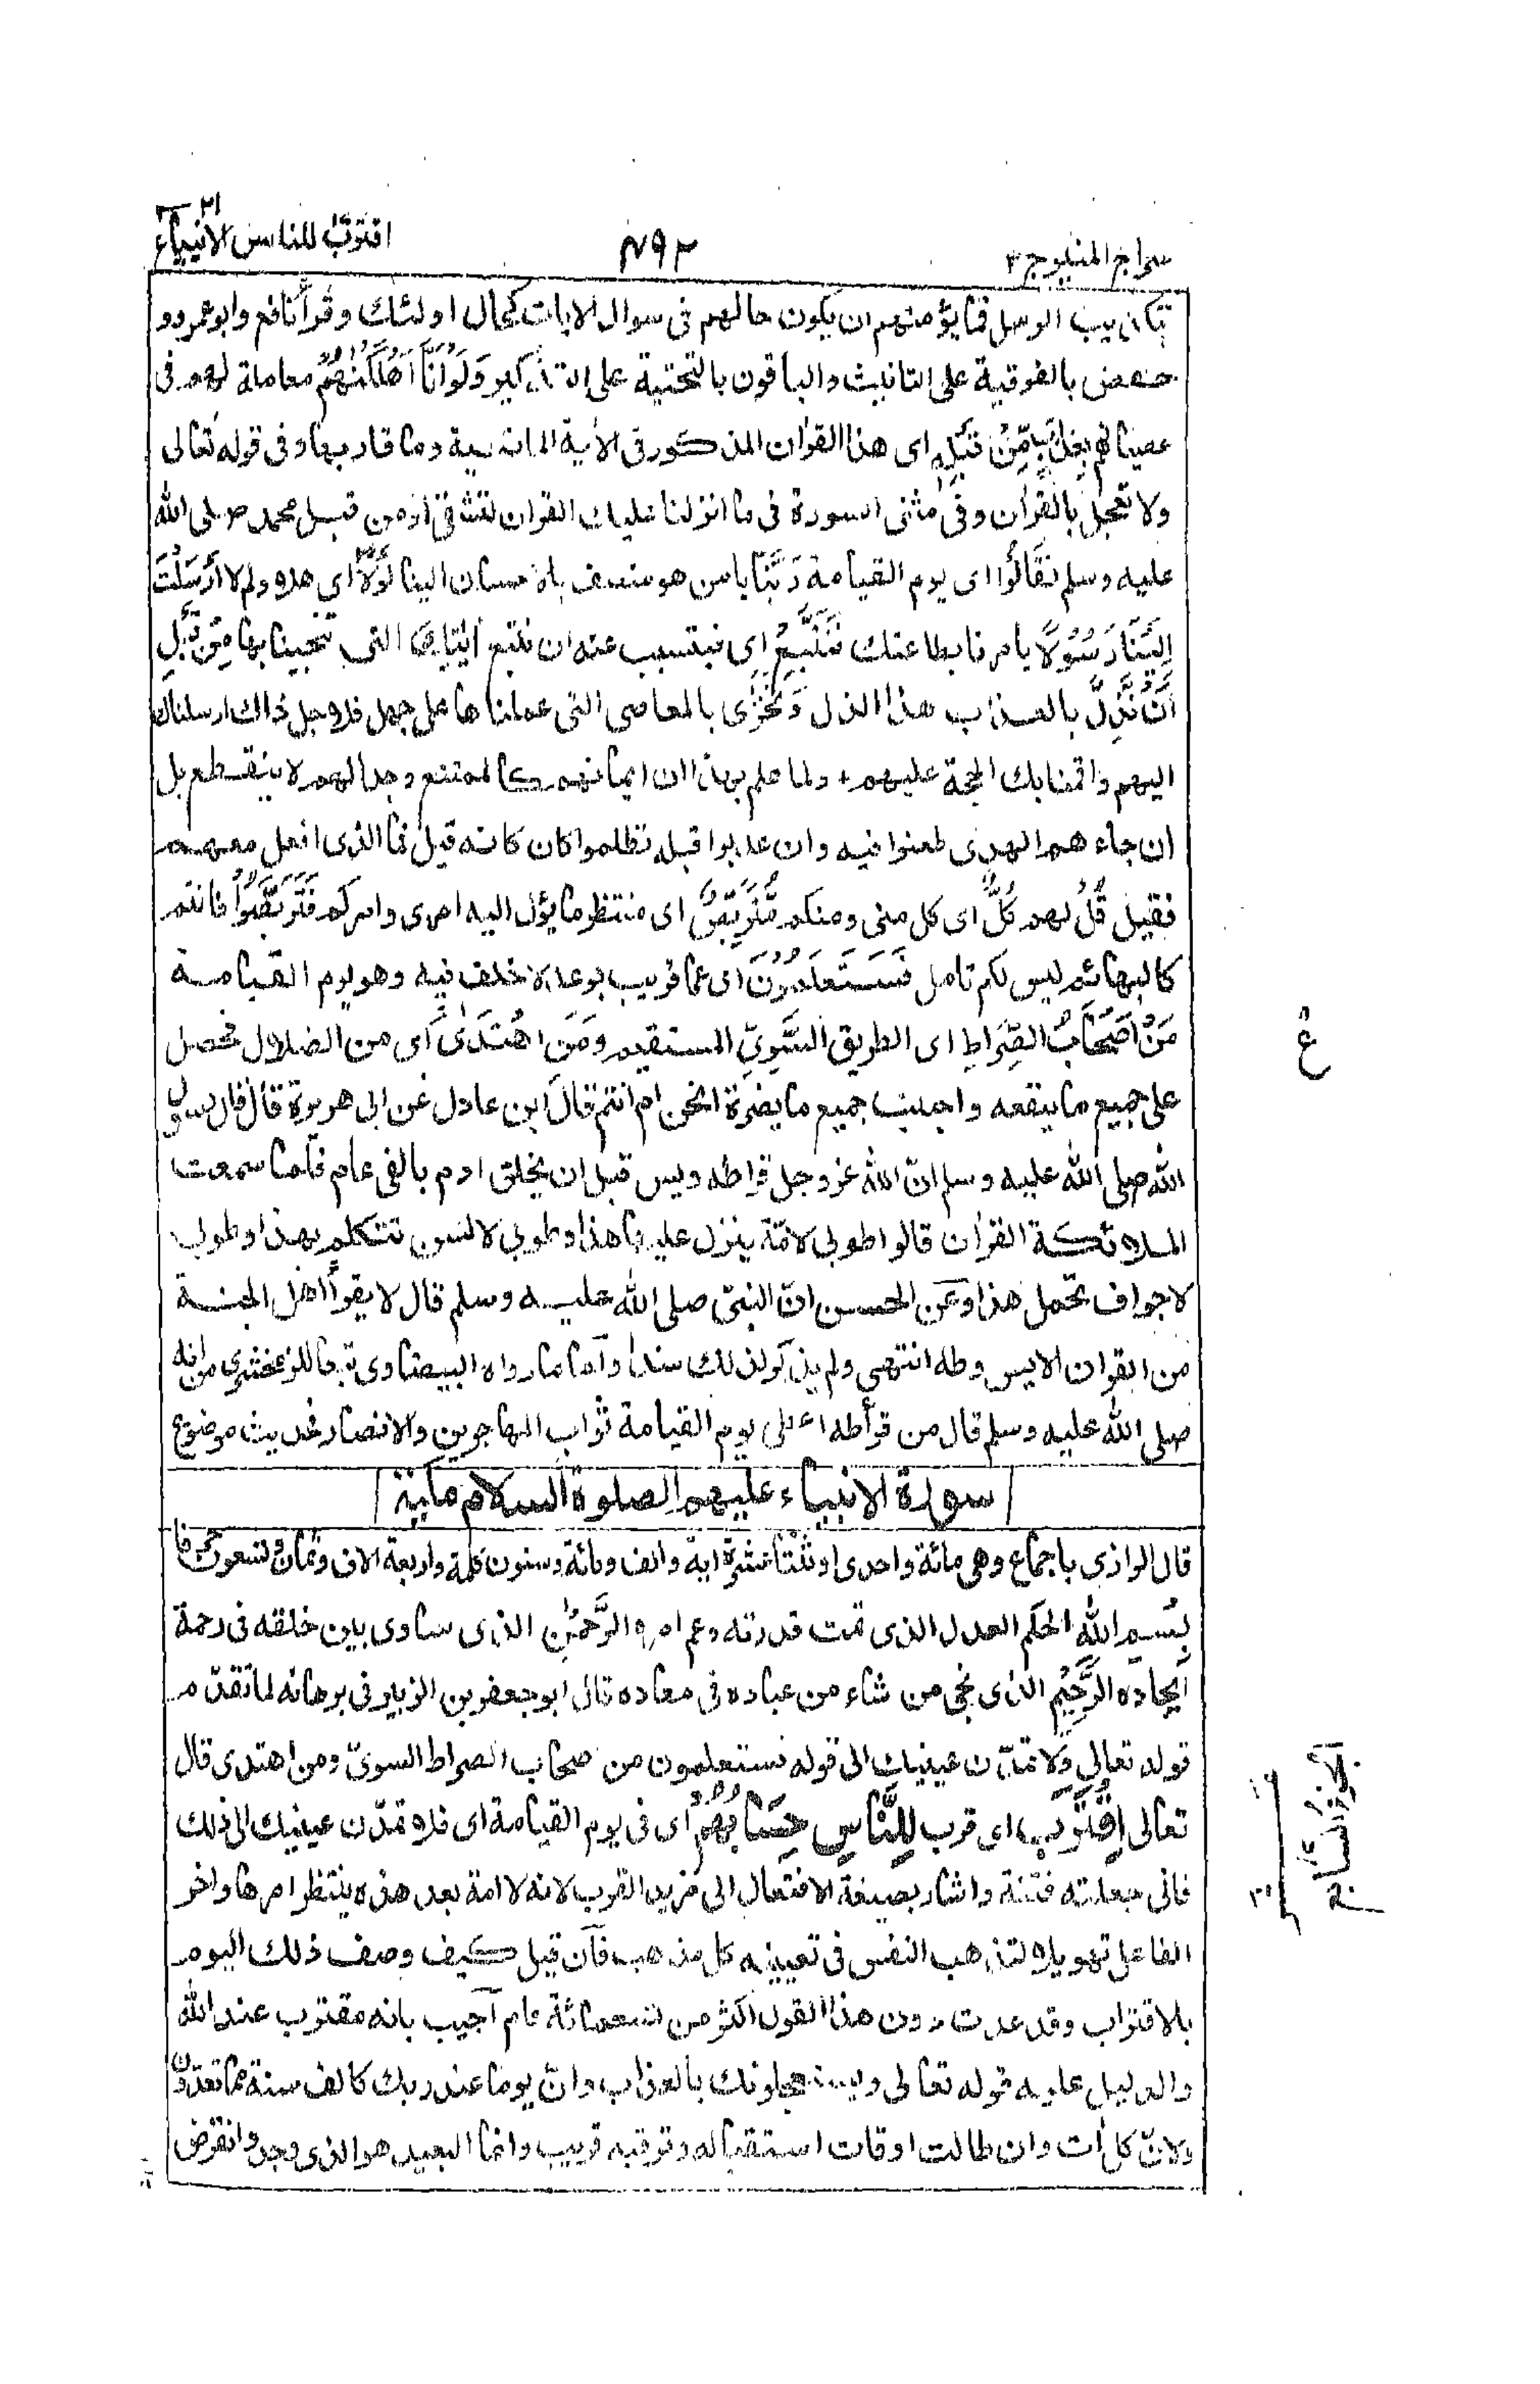 سراج المنير ج ٣
٤٩٢
اقترب للناس الانبياء ٢١
بتكذيب الرسل فما يؤمنهم ان يكون حالهم فى سوال الايات كحال اولئك وقرأ نافع وابو عمرو و
حفص بالفوقية على التانيث والباقون بالتحتية على التذكير وَلَوْ اَنَّا اَهْلَكْنٰهُمْ معاملة لهم فى
عصيانهم بِعَذَابٍ مِّنْ قَبْلِهٖ اى هذا القران المذكور فى الآية الماضية وما قاربها وفى قوله تعالى
ولا تعجل بالقرآن وفى مثنى السورة فى ما انزلنا عليك القران لتشقى اذ من قبل محمد صلى الله
عليه وسلم لَقَالُوْا اى يوم القيامة رَبَّنَا يا من هو متصف بالاحسان الينا لَوْلَا اى هلا ولم لا اَرْسَلْتَ
اِلَيْنَا رَسُوْلًا يامرنا بطاعتك فَنَتَّبِعَ اى فيتسبب عنه ان نتبع اٰيٰتِكَ التى تجيئنا بها مِنْ قَبْلِ
اَنْ نَّذِلَّ بالعذاب هذا الذل وَنَخْزٰى بالمعاصى التى عملناها على جهل فلاجل ذلك ارسلناك
اليهم واقمنا بك الحجة عليهم + ولما علم بهذا ان ايمانهم كالممتنع وجدالهم لا ينقطع بل
ان جاءهم الهدى طعنوا فيه وان عذبوا قبله تظلموا كان كانه قيل فما الذى افعل معهم
فقيل قُلْ لهم كُلٌّ اى كل منى ومنكم مُّتَرَبِّصٌ اى منتظر ما يؤل اليه امرى وامركم فَتَرَبَّصُوْا فانتم
كالبهائم ليس لكم تامل فَسَتَعْلَمُوْنَ اى عما قريب بوعد لا خلف فيه وهو يوم القيامة
مَنْ اَصْحٰبُ الصِّرَاطِ اى الطريق السَّوِيِّ المستقيم وَمَنِ اهْتَدٰى اى من الضلال فحصل
على جميع ما ينفعه واجتنب جميع ما يضره انحن ام انتم قال ابن عادل عن ابى هريرة قال قال رسول
الله صلى الله عليه وسلم انّ الله عز وجل قرا طه ويس قبل ان يخلق ادم بالفى عام فلما سمعت
الملائكة القرأن قالوا طوبى لامّة ينزل عليها هذا وطوبى لالسن تتكلم بهذا وطوبى
لاجواف تحمل هذا وعن الحسن انّ النبىّ صلى الله عليه وسلم قال لا يقرأ اهل الجنة
من القران الا يس وطه انتهى ولم يذكر لذلك سندا وأما ما رواه البيضاوى تبعا للزمخشرى من انه
صلى الله عليه وسلم قال من قرأ طه اعطى يوم القيامة ثواب المهاجرين والانصار فحديث موضوع
سورة الانبياء عليهم الصلوة والسلام مكية
قال الرازى باجماع وهى مائة واحدى او ثنتا عشرة اية والف ومائة وستون كلمة واربعة الاف وثمان وتسعون حرفا
بِسْمِ اللهِ الحكم العدل الذى تمت قدرته وعم امره الرَّحْمٰنِ الذى ساوى بين خلقه فى رحمة
ايجاده الرَّحِيْمِ الذى نجى من شاء من عباده فى معاده قال ابو جعفر بن الزبير فى برهانه لما تقدّم
قوله تعالى وَلَا تمدّن عينيك الى قوله فستعلمون من صحاب الصراط السوىّ ومن اهتدى قال
تعالى اِقْتَرَبَ اى قرب لِلنَّاسِ حِسَابُهُمْ اى فى يوم القيامة اى فلا تمدّن عينيك الى ذلك
فانى جعلته فتنة واشار بصيغة الافتعال الى مزيد القرب لانه لا امة بعد هذه ينتظر امرها واخر
الفاعل تهويلا لتذهب النفس فى تعيينه كل مذهب فآن قيل كيف وصف ذلك اليوم
بالاقتراب وقد عدت دون هذا القول اكثر من تسعمائة عام آجيب بانه مقترب عند الله
والدليل عليه قوله تعالى ويستعجلونك بالعذاب وانّ يوما عند ربك كالف سنة مما تعدّون
ولانّ كل أت وان طالت اوقات استقباله وترقبه قريب وانما البعيد هو الذى وجد وانقرض
ع
الجزء السابع